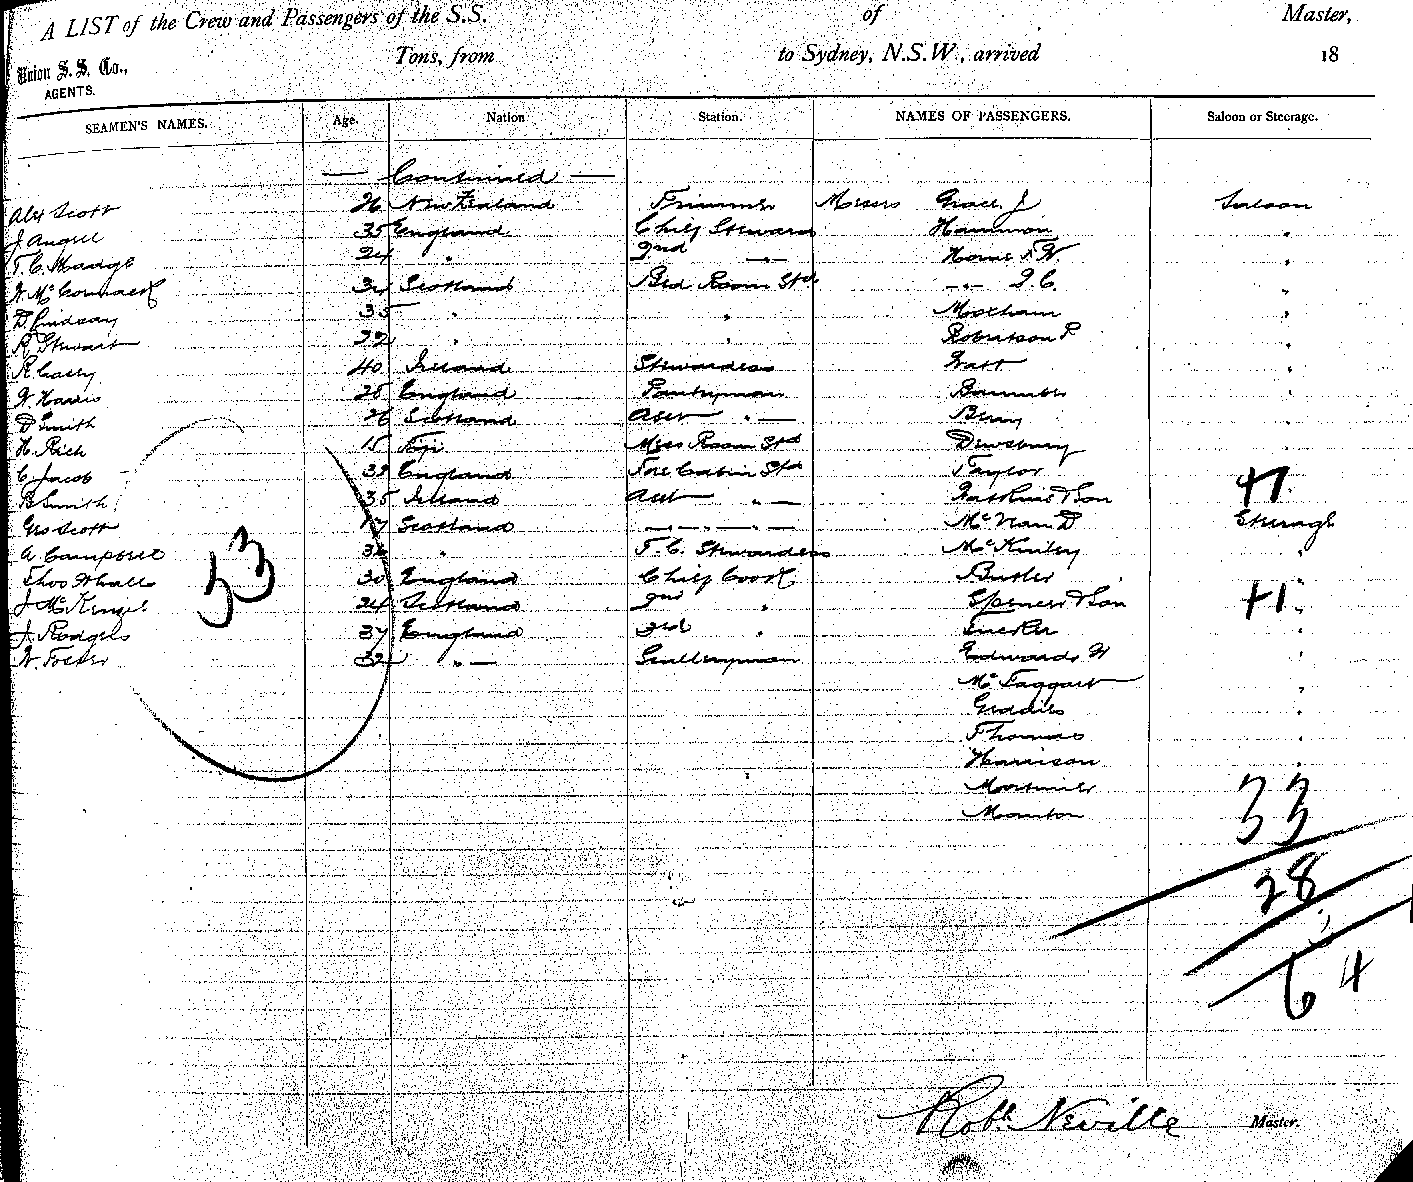 A LIST of the Crew and Passengers of the S.S. of Master,
Tons, from to Sydney, N.S.W., arrived 18
Union S. S. Co.,
AGENTS.
SEAMEN'S NAMES. Age. Nation Station. NAMES OF PASSENGERS. Saloon or Steerage.
— Continued —
Alex Scott 26 New Zealand Trimmer Messrs Grace J Saloon
J Angell 35 England Chief Steward Hammon "
T. C. Madge 24 " 2nd —"— Horne F W "
W McCormack 34 Scotland Bed Room Std. —"— J. C. "
D. Lindsay 35 " " Moxham "
R Stewart 22 " " Robertson P "
R Casey 40 Ireland Stewardess Watt "
W Harris 25 England Pantryman "
D Smith 26 Scotland Asst " — Berry "
H. Rich 15 Fiji Mess Room Std Dewsbury "
C Jacob 32 England Fore Cabin Std Taylor
B Smith 35 Ireland Asst " — & Son 47
Geo Scott 17 Scotland —"—"— McNam D Steerage
A Campbell 34 " F. C. Stewardess McKinley "
Thos Whalls 30 England Chief Cook Butler
J McKenzie 24 Scotland 2nd " Spencer & Son 41 "
J. Rodgers 37 England 3rd " Tucker "
W. Foster 32 " — Sculleryman Edwards W "
McTaggart "
Geddes "
Thomas "
Harrison "
Mortimer
Manton
33
33
28
64
Robt. Neville Master.